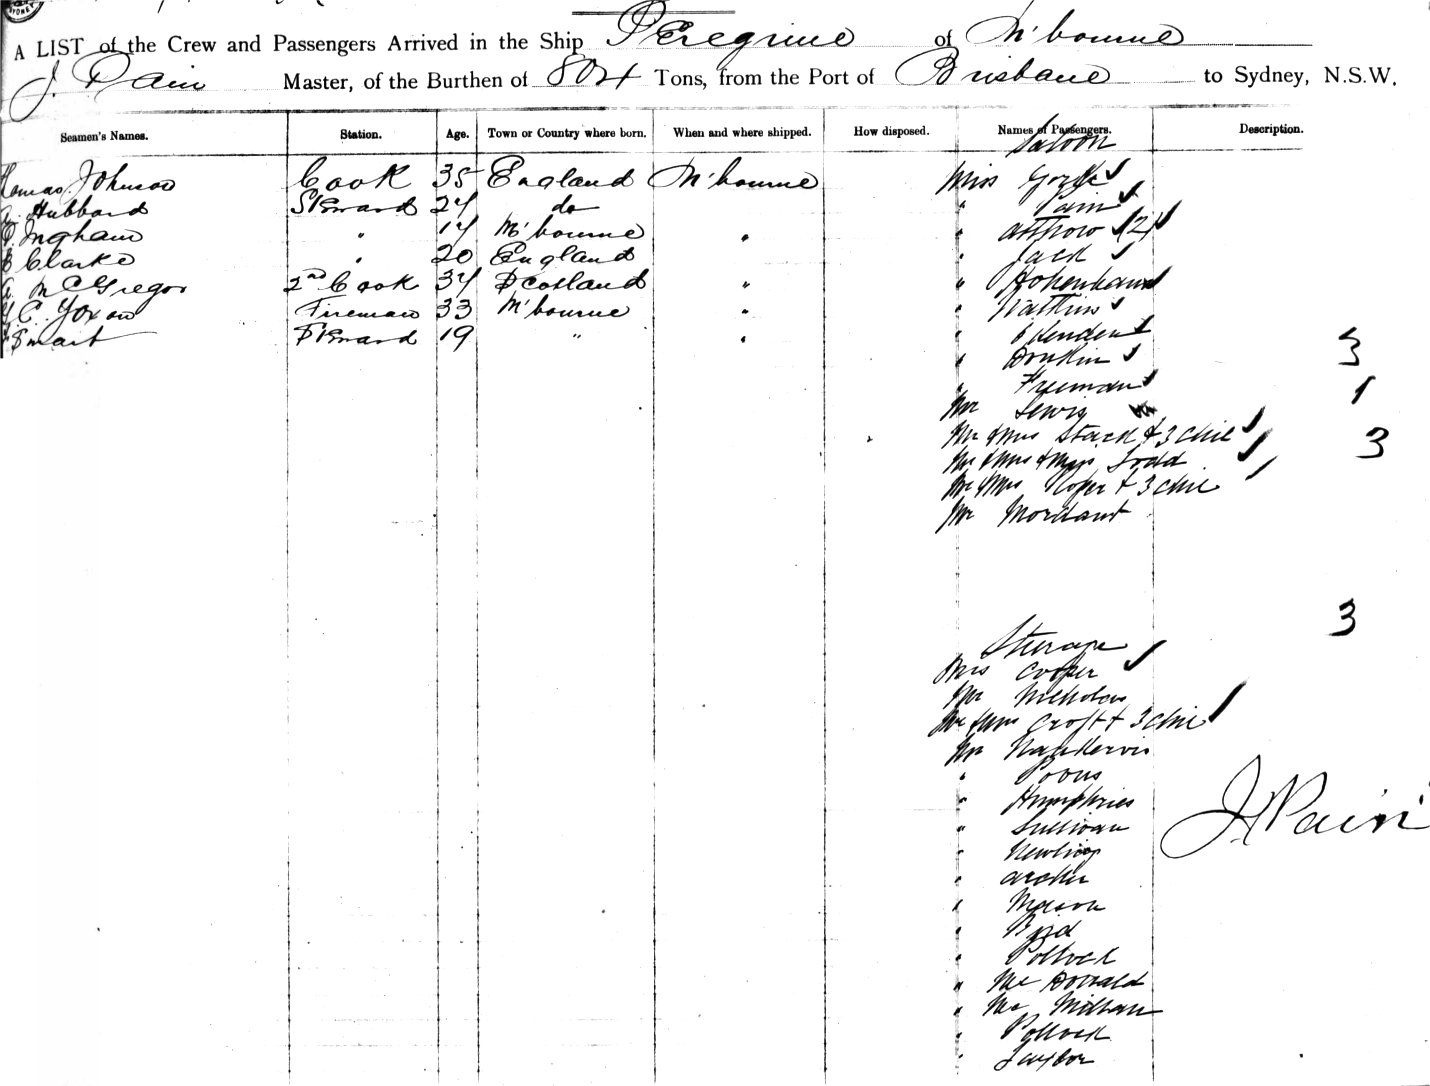 SYDNEY
A LIST of the Crew and Passengers Arrived in the Ship Peregrine of M'bourne
J. Pain Master, of the Burthen of 804 Tons, from the Port of Brisbane to Sydney, N.S.W.
Seamen's Names. Station. Age. Town or Country where born. When and where shipped. How disposed. Names of Passengers. Description.
Saloon
Johnson Cook 35 England M'bourne Miss
Hubbard Steward 24 do " Pain
Ingham " 17 M'bourne " " (2)
Clarke " 20 England " Jack
McGregor 2nd Cook 34 Scotland " "
C. Yoxon Fireman 33 M'bourne " Watkins
Smart Steward 19 " " "
" Donkin 3
" Freeman
Mr Lewis 1
Mr & Mrs Stack & 3 chil
Mr & Mrs & Miss Todd 3
Mr & Mrs Roper & 3 chil
Mr Mordaunt
3
Steerage
Mrs Cooper
Mr Nicholas
Mr & Mrs Croft & 3 chil
Mr Nankervis
" Poous
" Humphries
" Sullivan
J Pain
"
" Archer
" Mason
" Byrd
" Pollock
" Mc Donald
" Mc Millan
" Pollock
" Taylor